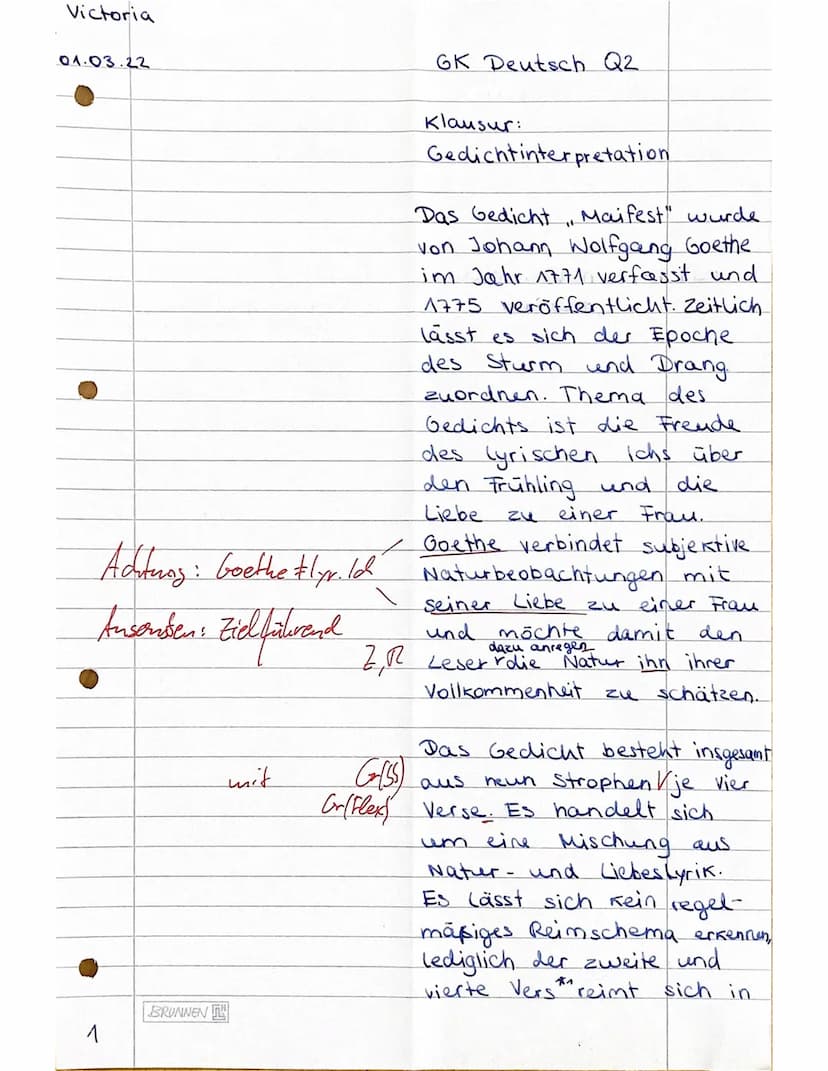 Victoria
01.03.22
GK Deutsch Q2
Klausur:
Gedichtinterpretation
Das Gedicht „Maifest" wurde
von Johann Wolfgang Goethe
im Jahr 1771 verfasst und
1775 veröffentlicht. Zeitlich
lässt es sich der Epoche
des Sturm und Drang
zuordnen. Thema des
Gedichts ist die Freude
des lyrischen Ichs über
den Frühling und die
Liebe zu einer Frau.
Achtung: Goethe ≠ lyr. Ich
Goethe verbindet subjektive
Naturbeobachtungen mit
seiner Liebe zu einer Frau
Ansonsten: Zielführend
und möchte damit den
dazu anregen
Z, R
Leser die Natur ihn ihrer
Vollkommenheit zu schätzen.
Das Gedicht besteht insgesamt
mit Gr(SS)
aus neun Strophen √ je vier
Gr(Flex)
Verse. Es handelt sich
um eine Mischung aus
Natur- und Liebeslyrik.
Es lässt sich kein regel-
mäßiges Reimschema erkennen,
lediglich der zweite und
vierte Vers *1 reimt sich in
BRUNNEN
1